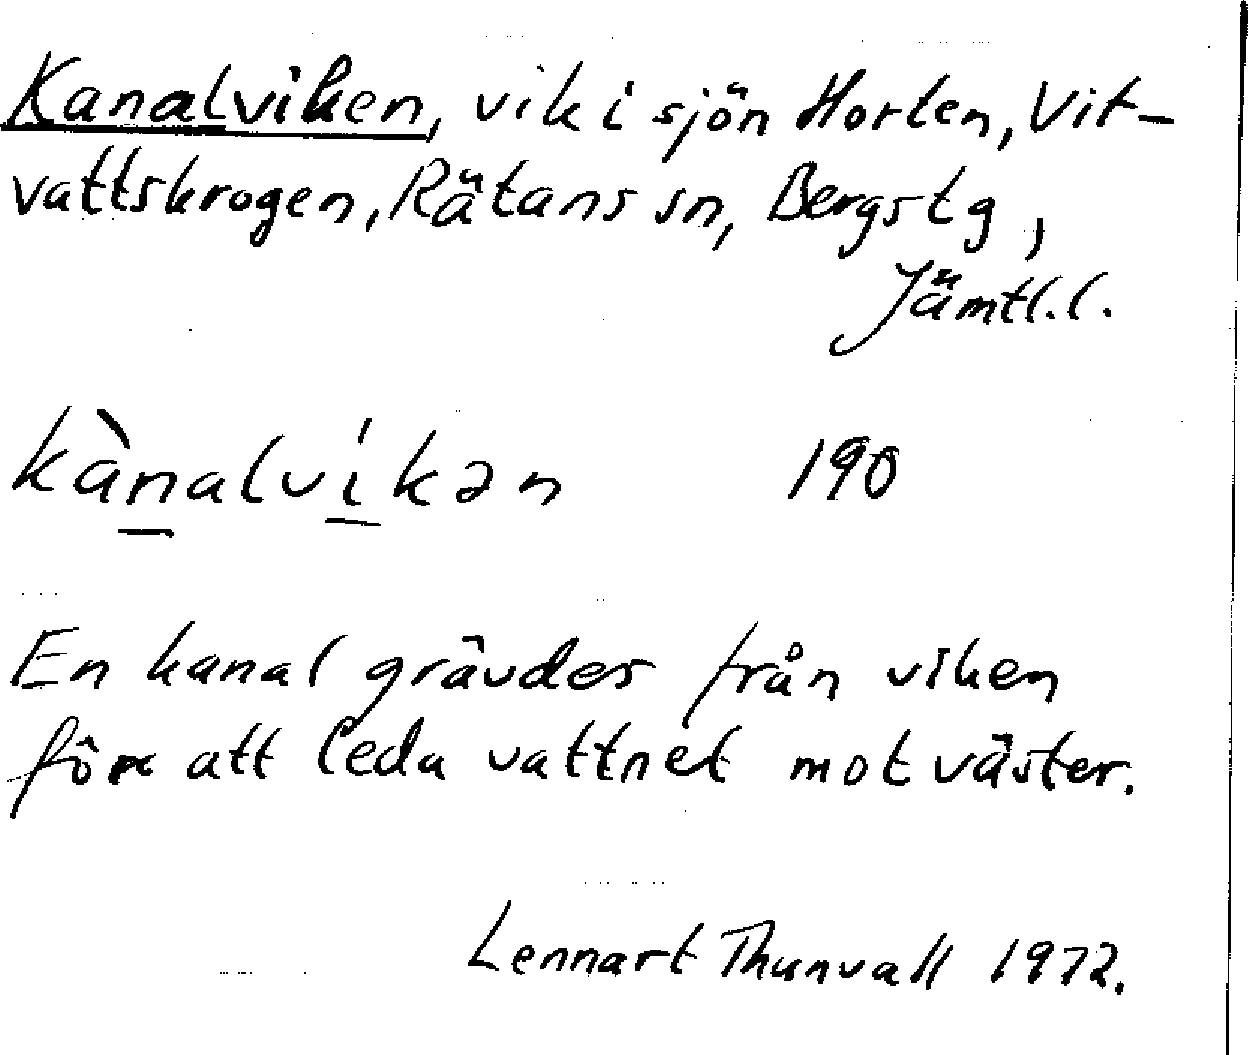 Kanalviken, vik i sjön Horten, Vit-
vattskrogen, Rätans sn, Bergs tg,
Jämtl.l.
kànalvíkən 190
En kanal grävdes från viken
för att leda vattnet mot väster.
Lennart Thunvall 1972.